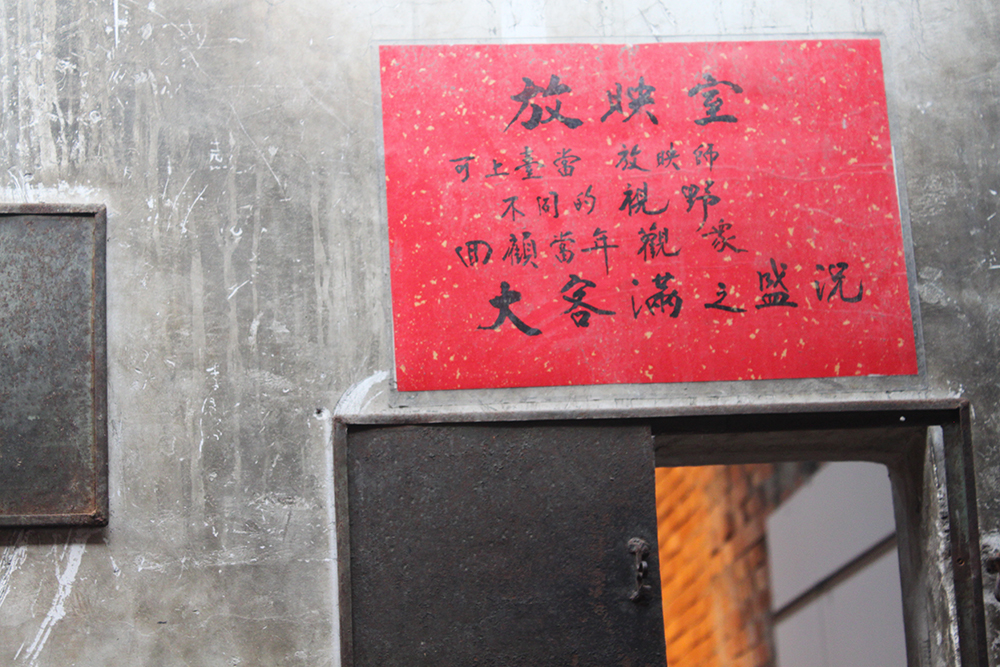 放映室
可上臺當 放映師
不同的視野
回顧當年觀眾
大客滿之盛況